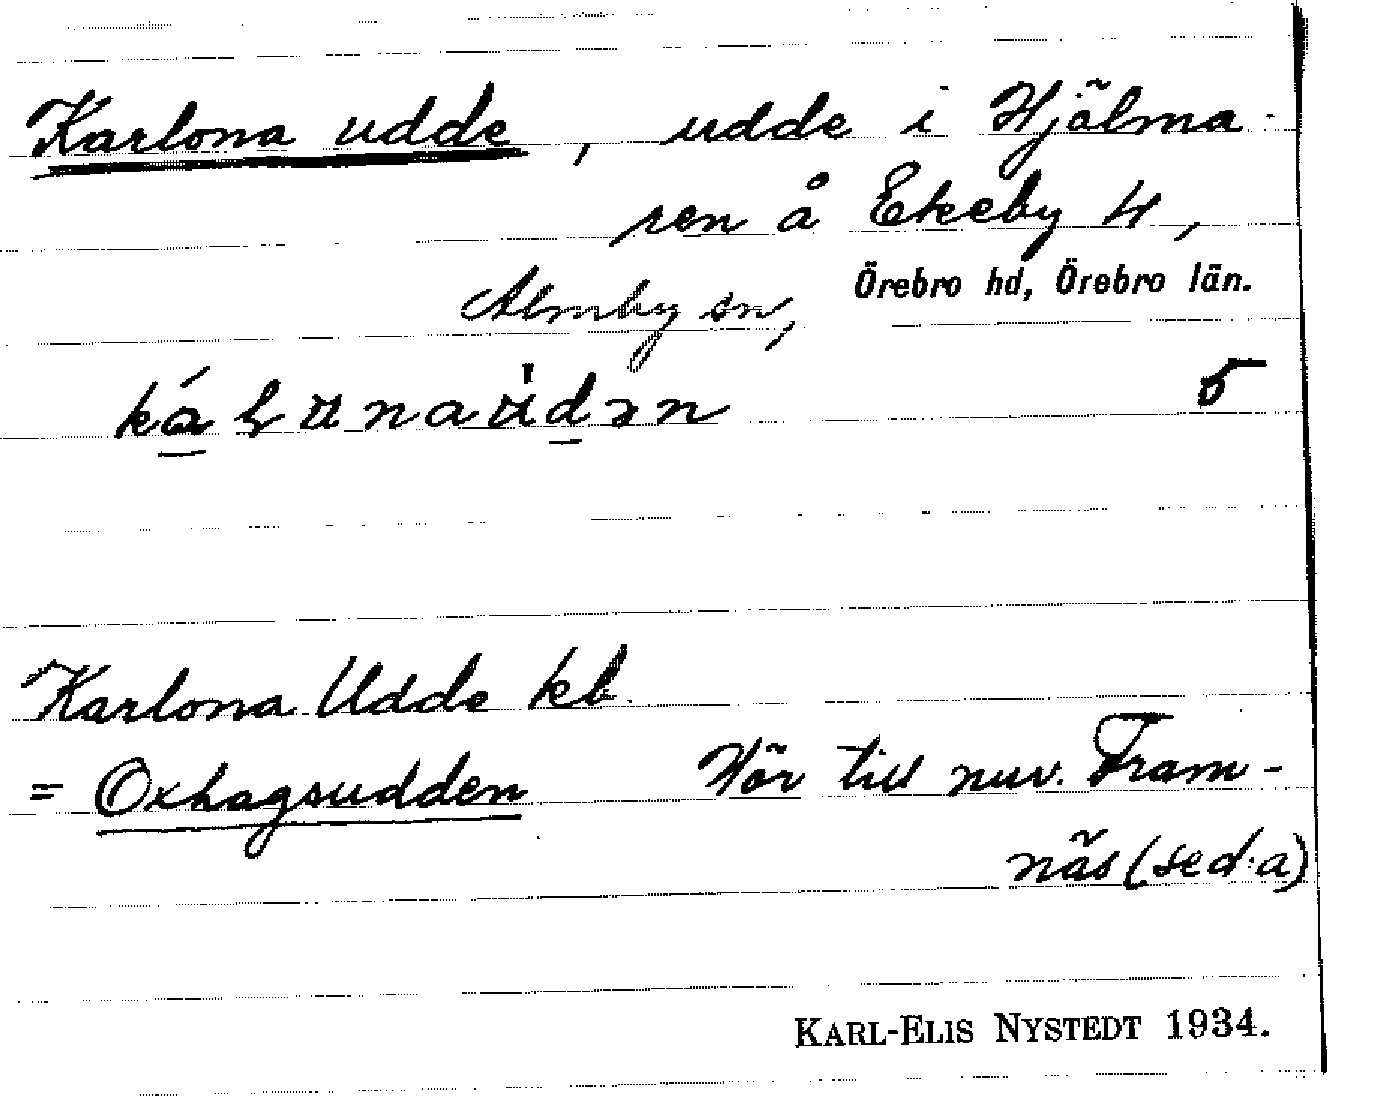 Karlona udde, udde i Hjälma-
ren å Ekeby 4,
Almby sn, Örebro hd, Örebro län.
5
Karlona Udde kb.
= Oxhagsudden Hör till nuv. Fram-
näs (sed.a)
KARL-ELIS NYSTEDT 1934.